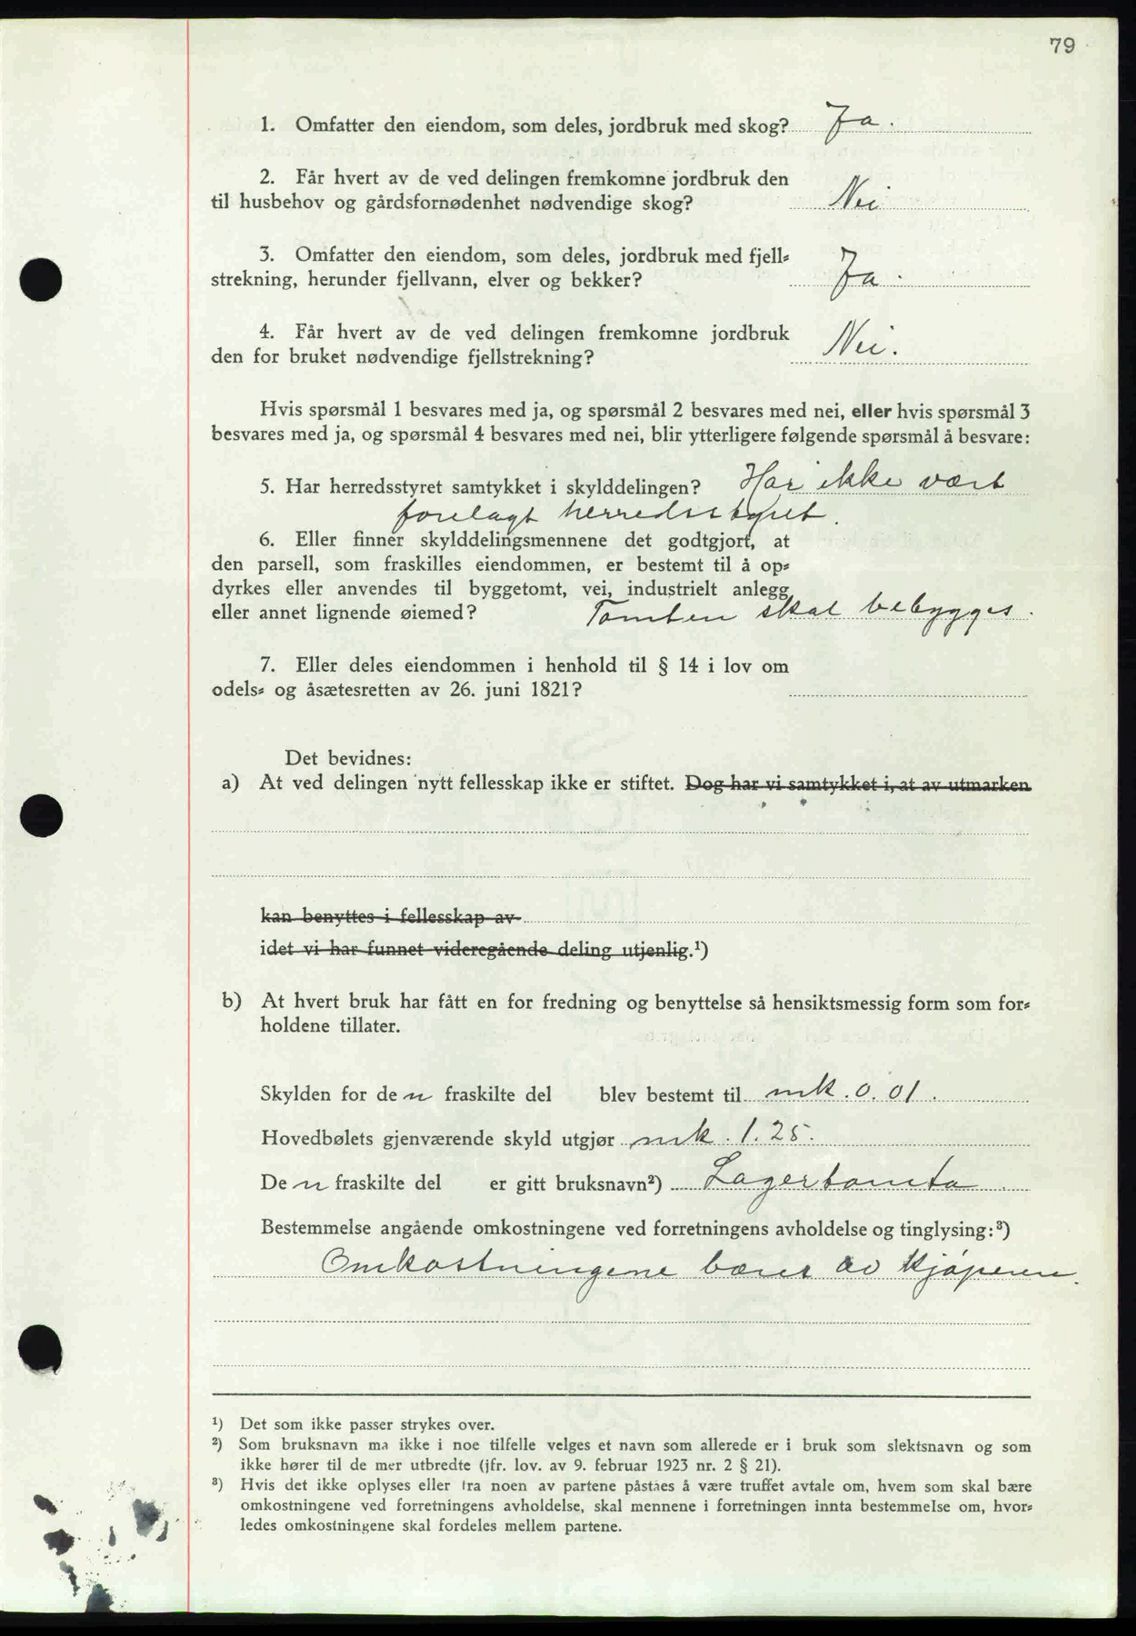 79
1. Omfatter den eiendom, som deles, jordbruk med skog? Ja.
2. Får hvert av de ved delingen fremkomne jordbruk den
til husbehov og gårdsfornødenhet nødvendige skog? Nei
3. Omfatter den eiendom, som deles, jordbruk med fjell-
strekning, herunder fjellvann, elver og bekker? Ja.
4. Får hvert av de ved delingen fremkomne jordbruk
den for bruket nødvendige fjellstrekning? Nei.
Hvis spørsmål 1 besvares med ja, og spørsmål 2 besvares med nei, eller hvis spørsmål 3
besvares med ja, og spørsmål 4 besvares med nei, blir ytterligere følgende spørsmål å besvare:
5. Har herredsstyret samtykket i skylddelingen? Har ikke vært
forelagt herredsstyret.
6. Eller finner skylddelingsmennene det godtgjort, at
den parsell, som fraskilles eiendommen, er bestemt til å op-
dyrkes eller anvendes til byggetomt, vei, industrielt anlegg
eller annet lignende øiemed? Tomten skal bebygges.
7. Eller deles eiendommen i henhold til § 14 i lov om
odels- og åsætesretten av 26. juni 1821?
Det bevidnes:
a) At ved delingen nytt fellesskap ikke er stiftet. Dog har vi samtykket i, at av utmarken
kan benyttes i fellesskap av
idet vi har funnet videregående deling utjenlig.¹)
b) At hvert bruk har fått en for fredning og benyttelse så hensiktsmessig form som for-
holdene tillater.
Skylden for den fraskilte del blev bestemt til mk. 0.01.
Hovedbølets gjenværende skyld utgjør mk. 1.25.
Den fraskilte del er gitt bruksnavn²) Lagertomta.
Bestemmelse angående omkostningene ved forretningens avholdelse og tinglysing:³)
Omkostningene bæres av kjøperen.
¹) Det som ikke passer strykes over.
²) Som bruksnavn må ikke i noe tilfelle velges et navn som allerede er i bruk som slektsnavn og som
ikke hører til de mer utbredte (jfr. lov. av 9. februar 1923 nr. 2 § 21).
³) Hvis det ikke oplyses eller fra noen av partene påstås å være truffet avtale om, hvem som skal bære
omkostningene ved forretningens avholdelse, skal mennene i forretningen innta bestemmelse om, hvor-
ledes omkostningene skal fordeles mellem partene.